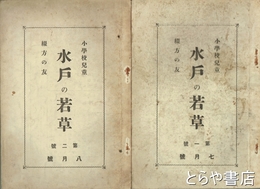 小學校兒童
綴方の友
水戸の若草
第二號
八月號
小學校兒童
綴方の友
水戸の若草
第一號
七月號
とらや書店